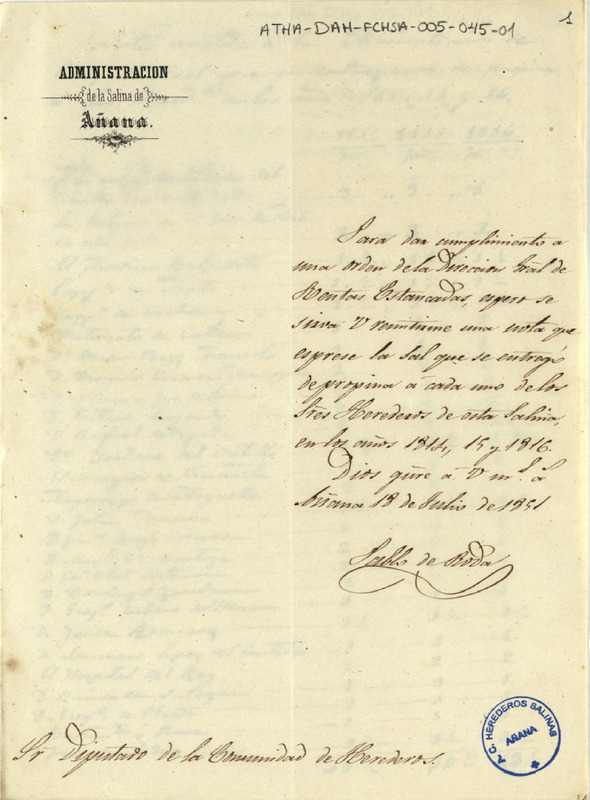 ATHA-DAH-FCHSA-005-045-01
1
ADMINISTRACION
de la Salina de
Añana.
Para dar cumplimiento a
una orden de la Direccion Gral de
Rentas Estancadas, espero se
sirva V remitirme una nota que
esprese la sal que se entregó
de propina á cada uno de los
Sres Herederos de esta Salina,
en los años 1814, 15 y 1816.
Dios gũe á V mṣ. ạṣ
Añana 18 de Julio de 1851
Pablo de Roda
Sr Diputado de la Comunidad de Herederos.
C. HEREDEROS SALINAS
AÑANA